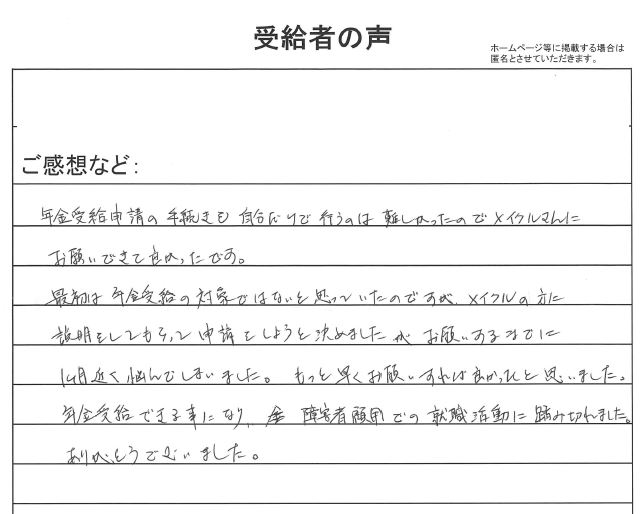 受給者の声
ホームページ等に掲載する場合は
匿名とさせていただきます。
ご感想など:
年金受給申請の手続きも自分だけで行うのは難しかったのでメイクルさんに
お願いできて良かったです。
最初は年金受給の対象ではないと思っていたのですが、メイクルの方に
説明をしてもらって申請をしようと決めましたが お願いするまでに
1ヶ月近く悩んでしまいました。もっと早くお願いすれば良かったと思いました。
年金受給できる事になり、障害者雇用での就職活動に踏み切れました。
ありがとうございました。